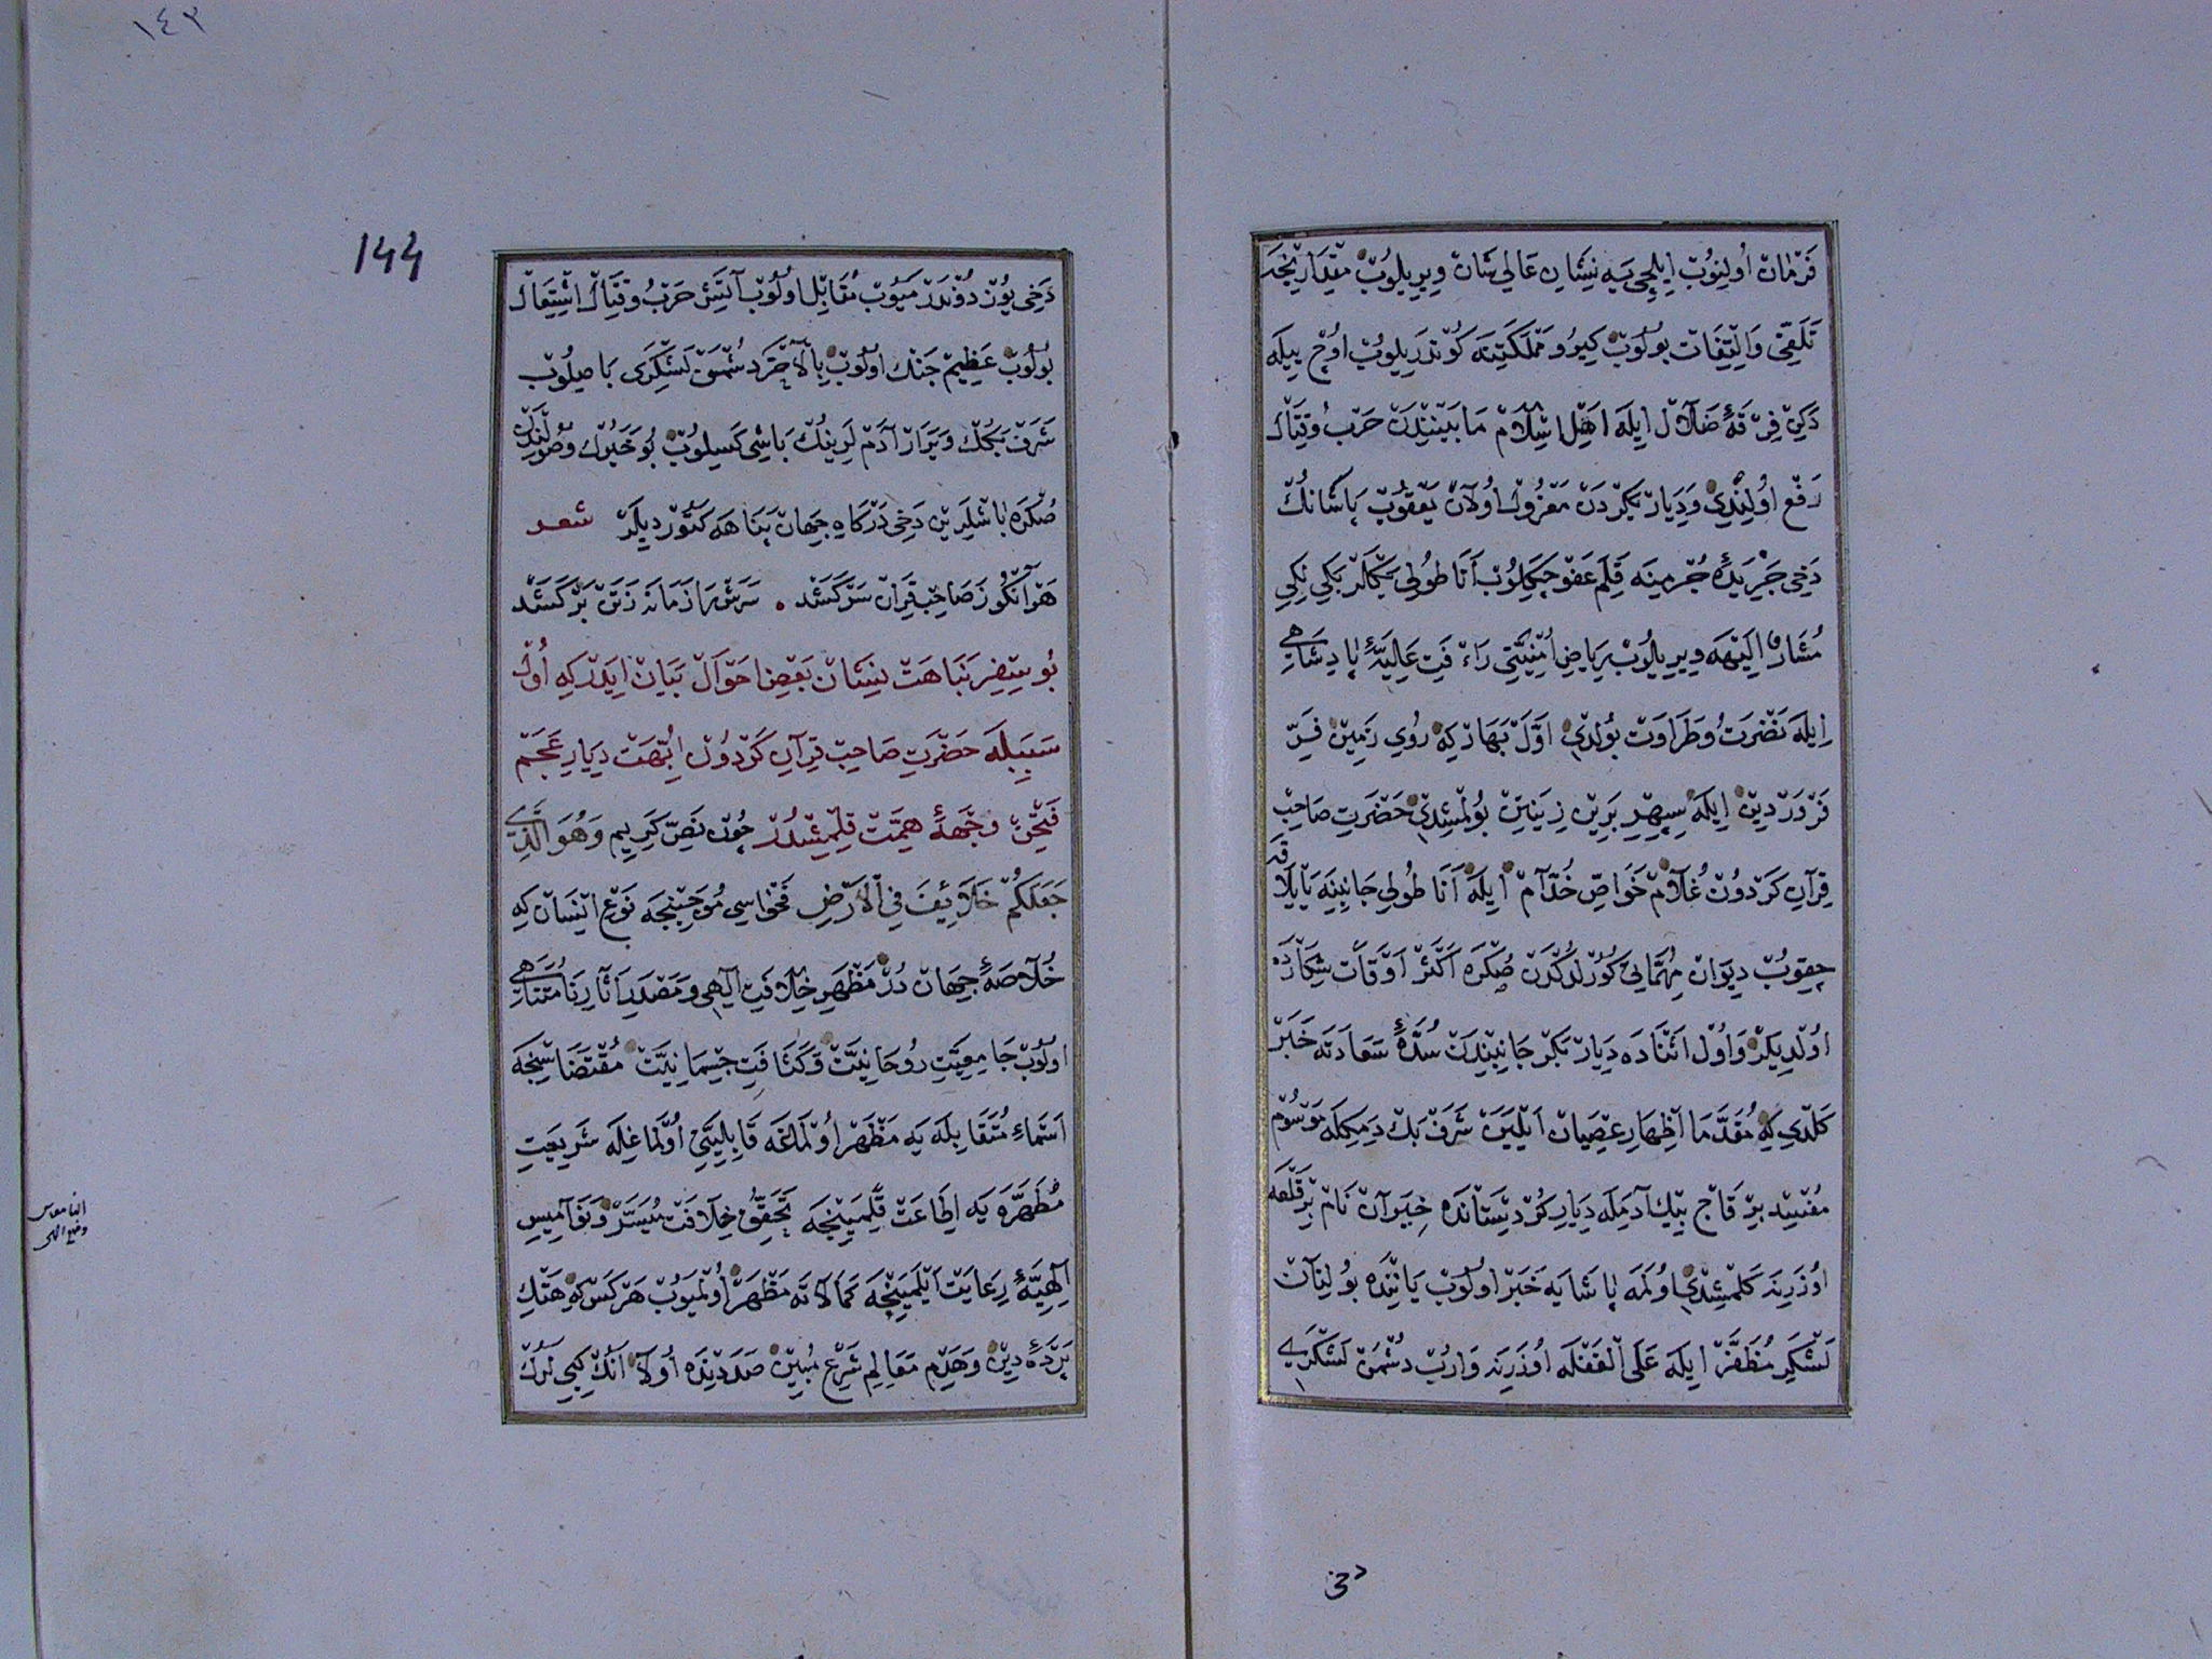 فَرْمَانْ اُولِنُوبْ اِيلْچِيَيه نِشَانِ عَالِي شَانْ وِيرِيلُوبْ مِقْدَارِنْجَه
تَلَقِّي وَاِلْتِفَاتْ بُولُوبْ كِيرُو مَمْلَكَتِنَه كُونْدَرِيلُوبْ اُوچْ يِيلَه
دَكِينْ فِرْقَۀ ضَلَالْ اِيلَه اَهْلِ اِسْلَامْ مَابَيْنِنْدَنْ حَرْبُ وقِتَالْ
رَفْع اُولِنْدِي وَدِيَارْ بَكِرْدَنْ مَعْزُولْ اُولَانْ يَعْقُوبْ پَاشَانُكْ
دَخِي جَرِيدَۀ جُرْمِينَه قَلَمِ عَفْو چَكِلُوبْ اَنَاطُولِي بَكْلَرْبَكِي لِكِي
مُشَارٌ اِلَيْهَه وِيرِيلُوبْ رِيَاضِ اُمْنِيَّتِي رَاْفَتِ عَلِيَّۀ پَادِشَاهِي
اِيلَه نَضْرَتُ وطَرَاوَتْ بُولْدِي اَوَّلْ بَهَارْ كِه رُوي زَمِينْ فَرِّ
فَرْوَرْدِينْ اِيلَه سِپِهْرِ بَرِينْ زِينَتِنْ بُولْمِشِدِي حَضْرَتِ صَاحِبْ
قِرَانِ كَرْدُونْ غُلَامْ خَوَاصِّ خُدَّامْ اِيلَه اَنَاطُولِي جَانِبِنَه يَايْلَاقَه
چِقُوبْ دِيوَانْ مُهِمَّاتِي كُورُلْدُكْدَنْ صُكْرَه اَكْثَرْ اَوْقَاتْ شِكَارْدَه
اُولْدِيلَرْ وَاُولْ اَثْنَادَه دِيَارْ بَكْرْ جَانِبِنْدَنْ سُدَّۀ سَعَادَتَه خَبَرْ
كَلْدِي كِه مُقَدَّمَا اِظْهَارِ عِصْيَانْ اَيْلَيَنْ شَرَفْ بَكْ دِمَكِلَه مَوْسُومْ
مُفْسِدْ بِرْ قَاچْ بِيكْ آدَمِلَه دِيَارِ كُرْدِسْتَانْدَه خِيَزَانْ نَامْ بِرْ قَلْعَه
اُوزَرِينَه كَلْمِشِدِي اُولَمَه پَاشَايَه خَبَرْ اُولُوبْ يَانِنْدَه بُولِنَانْ
لَشْكَرِ مُظَفَّرْ اِيلَه عَلَى الْغَفْلَه اُوزَرِينَه وَارُبْ دُشْمَنْ لَشْكَرِي
دخى
١٤٣
144
دَخِي يُوزْ دُونْدَرْمَيُوبْ مُقَابِلْ اُولُوبْ آتَشِ حَرْبُ وقِتَالْ اِشْتِعَالْ
بُولُوبْ عَظِيمْ جَنْك اُولُوبْ بِالْآخَرَه دُشْمَنْ لَشْكَرِي بَاصِلُوبْ
شَرَفْ بَكُكْ وَيَرَارْ آدَمْلَرِينُكْ بَاشِي كَسِيلُوبْ بُو خَبَرُكْ وُصُولِنْدَنْ
صُكْرَه بَاشْلَرِينْ دَخِي دَرْكَاهِ جِهَانْ پَنَاهَه كَتُورْدِيلَرْ شعر
هَرْ آنْكُو زَ صَاحِبْ قِرَانْ سَرْكَشَدْ سَرَشْ رَا زَمَانَه زَتَنْ بَرْكَشَدْ
بُو سِفْرِ نَبَاهَتْ نِشَانْ بَعْضِ اَحْوَالْ بَيَانْ اِيدَرْ كِه اُولْ
سَبَبِلَه حَضْرَتِ صَاحِبْ قِرَانِ كَرْدُونْ اُبَّهَتْ دِيَارِ عَجَمْ
فَتْحِنْ وِجْهَۀ هِمَّتْ قِلْمِشْدُرْ چُونْ نَصِّ كَرِيمِ وَهُوَ الَّذِي
جَعَلَكُمْ خَلَائِفَ فِي الْاَرْضِ فَحْوَاسِي مُوجِبِنْجَه نَوْعِ اِنْسَانْ كِه
خُلَاصَۀ جِهَانْ دُرْ مَظْهَرِ خِلَافَتِ اِلٰهِي وَمَصْدَرِ اٰثَارِ نَا مُتَنَاهِي
اُولُوبْ جَامِعِيَّتِ رُوحَانِيَّتْ وَكَثَافَتِ جِسْمَانِيَّتْ مُقْتَضَاسِنْجَه
اَسْمَاءِ مُتَقَابِلَه يَه مَظْهَرْ اُولْمَاغَه قَابِلِيَّتِي اُولْمَاغِلَه شَرِيعَتِ
مُطَهَّرَه يَه اِطَاعَتْ قِلْمَيِنْجَه تَحَقُّقِ خِلَافَتْ مُيَسَّرْ وَنَوَامِيسِ
اِلٰهِيَّۀ رِعَايَتْ اَيْلَمَيِنْجَه كَمَالَاتَه مَظْهَرْ اُولْمَيُوبْ هَرْ كَسْ كِه هَتْكِ
پَرْدَۀ دِينْ وَهَدْمِ مَعَالِمِ شَرْعِ مُبِينْ صَدَدِنْدَه اُولَا اَنُكْ كِبِي لَرُكْ